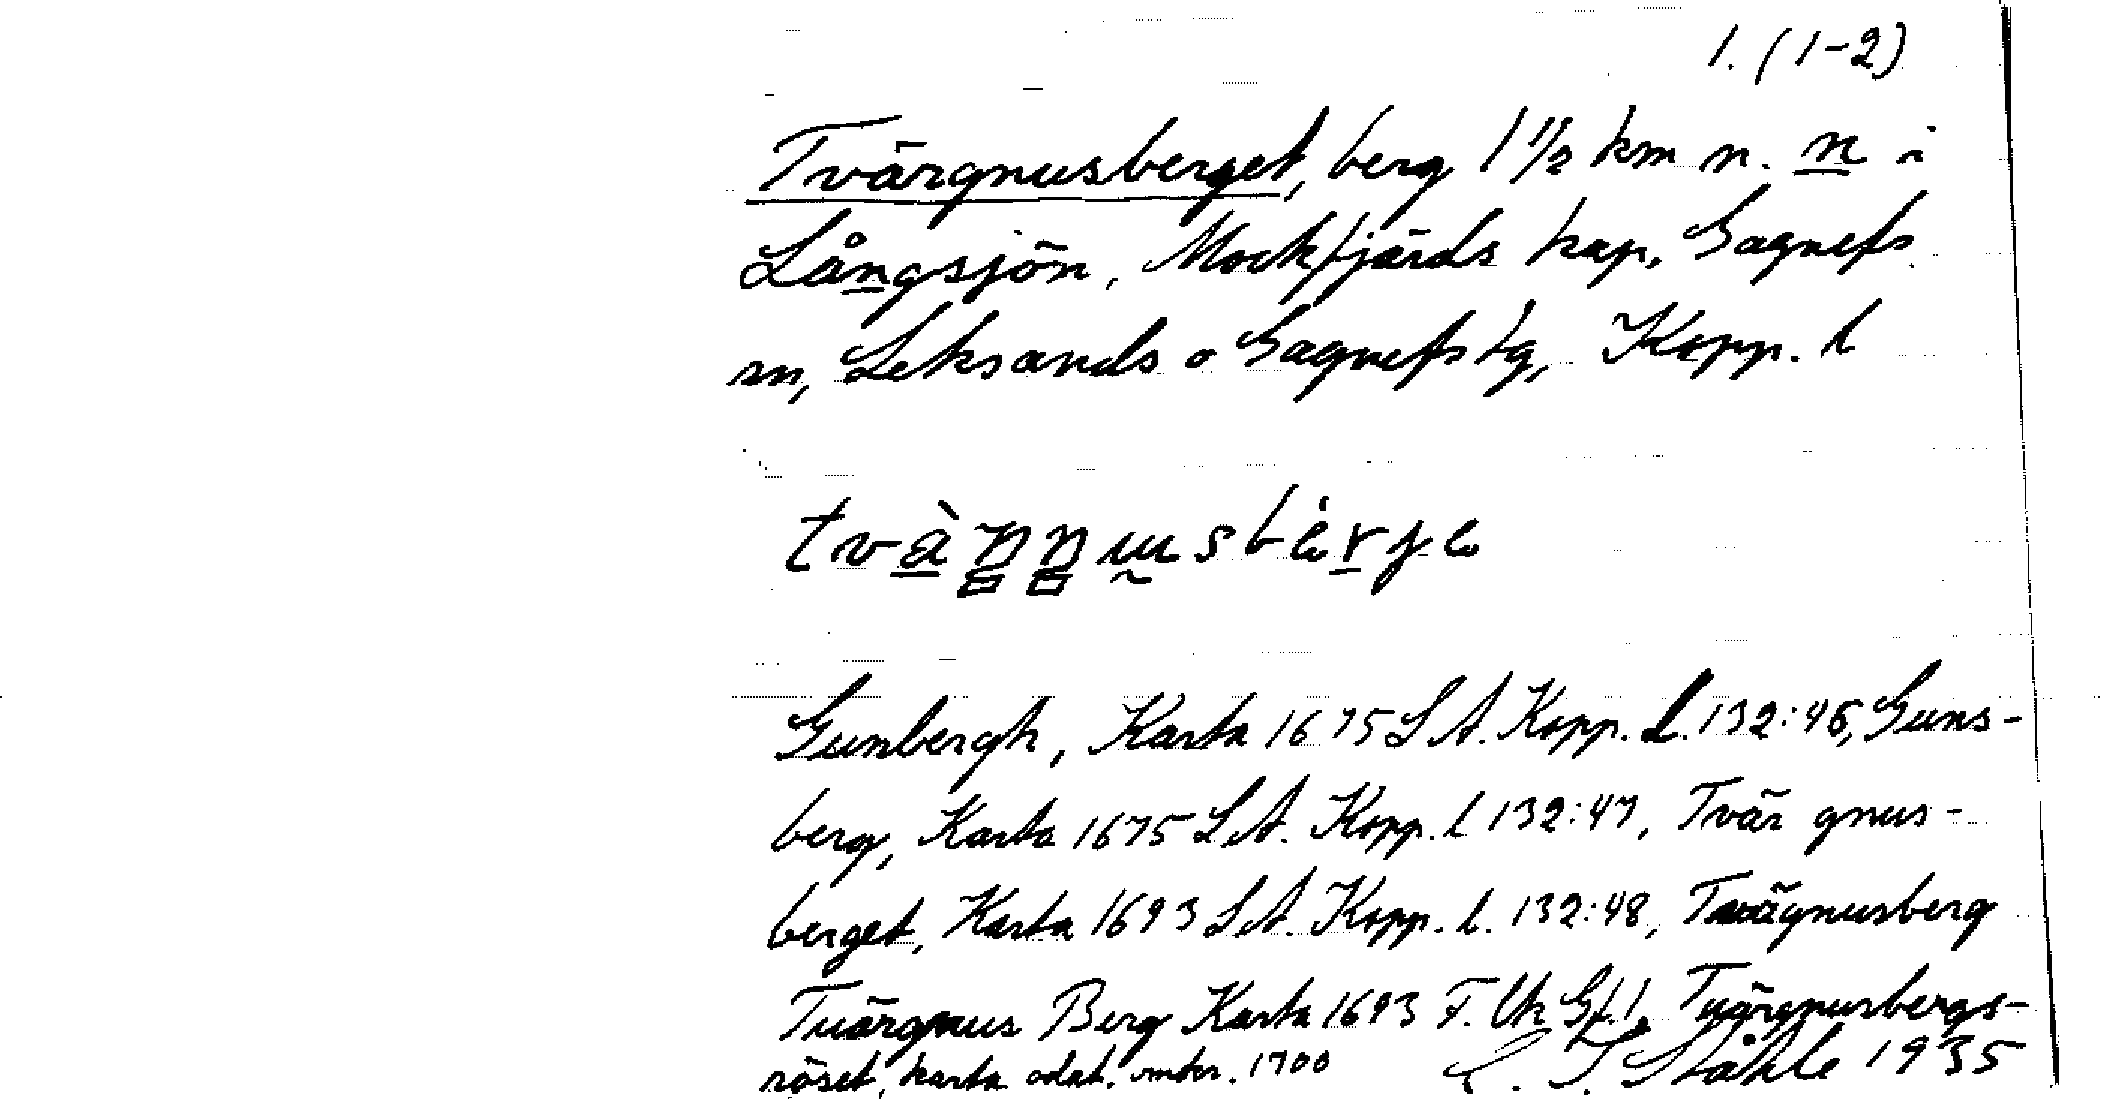 1. (1-2)
Tvärgnusberget, berg 1 1/2 km n. n i
Långsjön, Mockfjärds kap, Gagnefs
sn, Leksands o Gagnefs tg, Kopp. l
Gunbergh, Karta 1675 LA. Kopp. l. 132:46, Guns-
berg, Karta 1675 LA. Kopp. l 132:47, Tvär gnus-
berget, Karta 1693 LA. Kopp. l. 132:48, Tvägnusberg
Tuärgnus Berg Karta 1693 F. Tuärgnusbergs-
röset, karta odat. 1700 C. I. Ståhle 1935